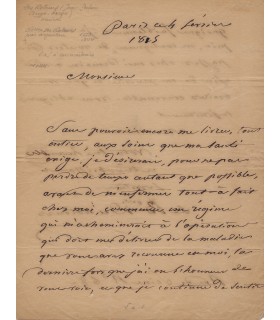 Paris ce 4 février
1815
Monsieur
Sans pouvoir encore me livrer, tout
entier, aux soins que ma santé
exige, je désirerais, pour ne pas
perdre de temps autant que possible,
avant de m'enfermer tout à fait
chez moi, commencer un régime
qui m'acheminerait à l'opération
qui doit me délivrer de la maladie
que vous avez reconnue en moi la
dernière fois que j'ai eu l'honneur de
vous voir, et que je continue de sentir